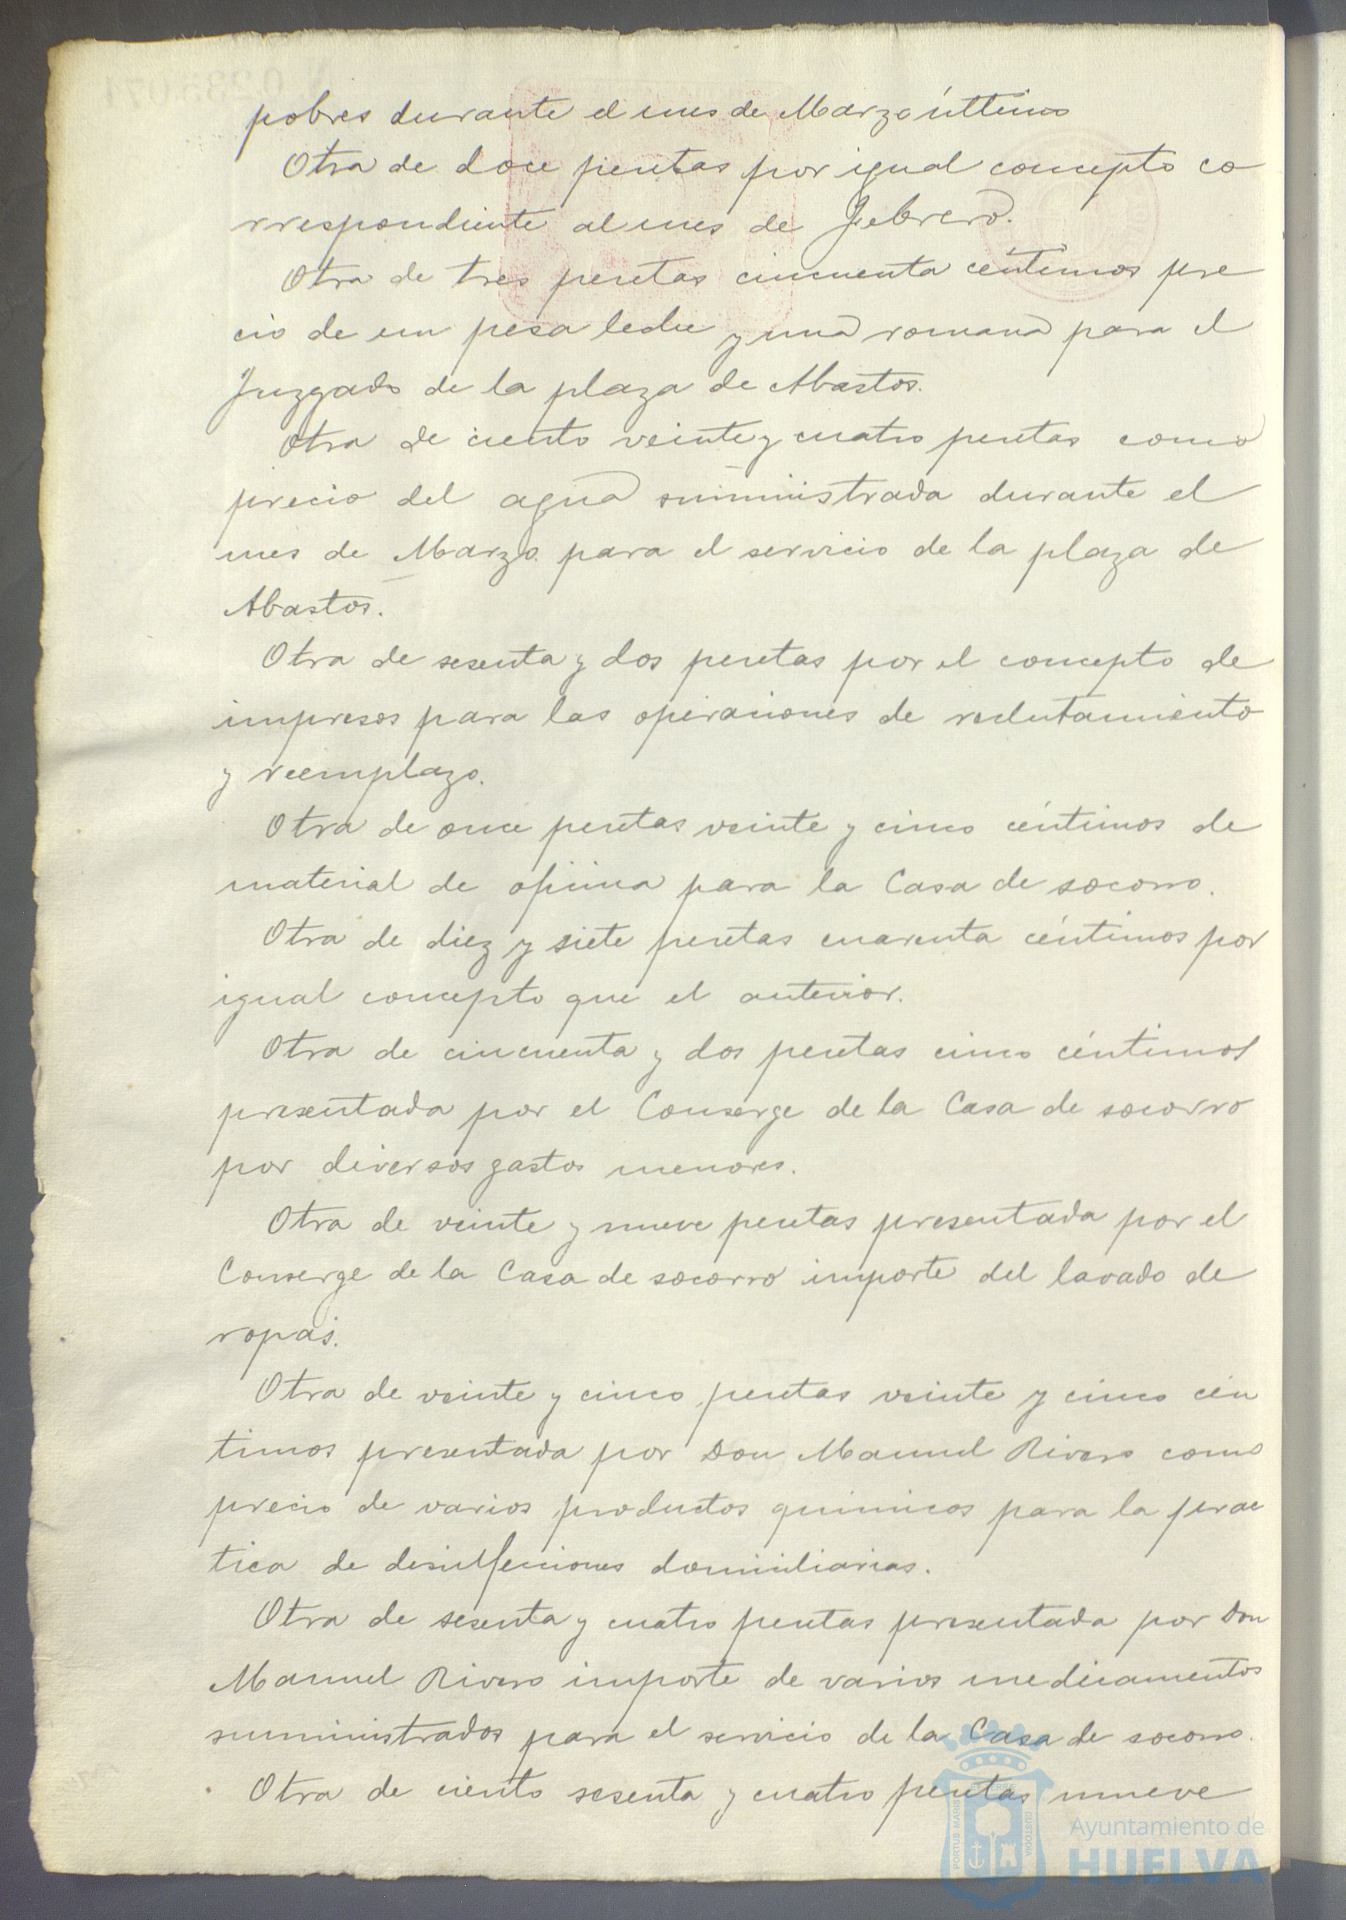 pobres durante el mes de Marzo último
Otra de doce pesetas por igual concepto co
rrespondiente al mes de Febrero.
Otra de tres pesetas cincuenta céntimos pre
cio de un pesa leche y una romana para el
Juzgado de la plaza de Abastos.
Otra de ciento veinte y cuatro pesetas como
precio del agua suministrada durante el
mes de Marzo para el servicio de la plaza de
Abastos.
Otra de sesenta y dos pesetas por el concepto de
impresos para las operaciones de reclutamiento
y reemplazo.
Otra de once pesetas veinte y cinco céntimos de
material de oficina para la Casa de socorro.
Otra de diez y siete pesetas cuarenta céntimos por
igual concepto que el anterior.
Otra de cincuenta y dos pesetas cinco céntimos
presentada por el Conserge de la Casa de socorro
por diversos gastos menores.
Otra de veinte y nueve pesetas presentada por el
Conserge de la Casa de socorro importe del lavado de
ropas.
Otra de veinte y cinco pesetas veinte y cinco cén
timos presentada por Don Manuel Rivero como
precio de varios productos quimicos para la prac
tica de desinfecciones domiciliarias.
Otra de sesenta y cuatro pesetas presentada por Don
Manuel Rivero importe de varios medicamentos
suministrados para el servicio de la Casa de socorro.
Otra de ciento sesenta y cuatro pesetas nueve
Ayuntamiento de
HUELVA